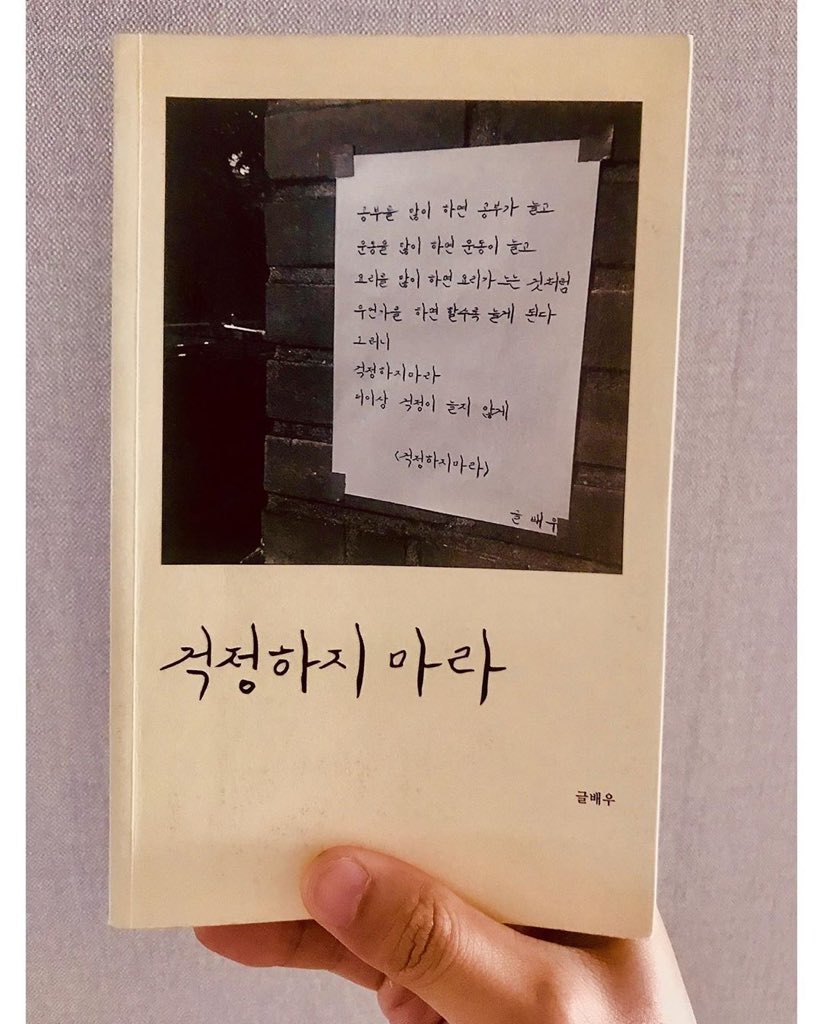 공부를 많이 하면 공부가 늘고
운동을 많이 하면 운동이 늘고
요리를 많이 하면 요리가 느는 것처럼
무언가를 하면 할수록 늘게 된다
그러니
걱정하지마라
더이상 걱정이 늘지 않게
<걱정하지마라>
글배우
걱정하지 마라
글배우